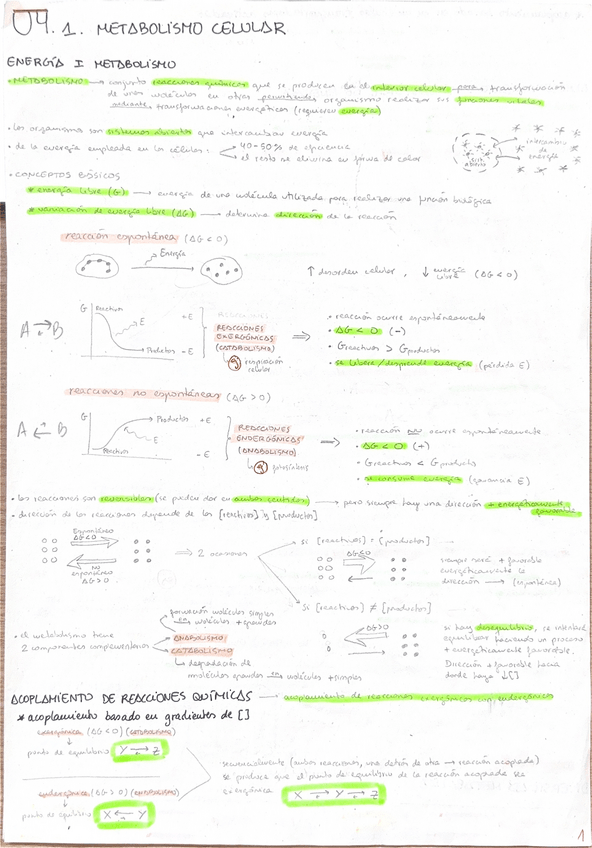 04.1. METABOLISMO CELULAR
ENERGÍA I METABOLISMO
• METABOLISMO → conjunto reacciones químicas que se producen en el interior celular para transformación
de unas moléculas en otras permitiendo organismo realizar sus funciones vitales
mediante transformaciones energéticas (requieren energía)
• los organismos son sistemas abiertos que intercambian energía
intercambio
de energía
• de la energía empleada en las células: 40-50% de eficiencia
el resto se elimina en forma de calor
• CONCEPTOS BÁSICOS
* energía libre (G) → energía de una molécula utilizada para realizar una función biológica
* variación de energía libre (ΔG) → determina dirección de la reacción
reacción espontánea (ΔG < 0)
Energía
↑ desorden celular, ↓ energía libre (ΔG < 0)
A ⇄ B
G Reactivos
E
Productos
+E
-E
REACCIONES
EXERGÓNICAS
(CATABOLISMO)
respiración
celular
⇒
• reacción ocurre espontáneamente
• ΔG < 0 (-)
• Greactivos > Gproductos
• se libera/desprende energía (pérdida E)
reacciones no espontáneas (ΔG > 0)
A ⇄ B
G Productos
E
Reactivos
+E
-E
REACCIONES
ENDERGÓNICAS
(ANABOLISMO)
⇒
• reacción NO ocurre espontáneamente
• ΔG < 0 (+)
• Greactivos < Gproducto
• se consume energía (ganancia E)
• las reacciones son reversibles (se pueden dar en ambos sentidos) → pero siempre hay una dirección + energéticamente favorable
• dirección de las reacciones depende de los [reactivos] y [productos]
Espontáneo
ΔG<0
no
espontáneo
ΔG>0
⇒ 2 ocasiones
si [reactivos] = [productos]
siempre será + favorable
energéticamente la
dirección → (espontánea)
Si [reactivos] ≠ [productos]
ΔG>0
si hay desequilibrio, se intentará
equilibrar haciendo un proceso
+ energéticamente favorable.
Dirección + favorable hacia
donde haya ↓[]
formación moléculas simples
en moléculas + grandes
• el metabolismo tiene
2 componentes complementarios
ANABOLISMO
CATABOLISMO
degradación de
moléculas grandes en moléculas + simples
ACOPLAMIENTO DE REACCIONES QUÍMICAS → acoplamiento de reacciones exergónicas en endergónicas
* acoplamiento basado en gradientes de []
exergónica (ΔG < 0) (CATABOLISMO)
punto de equilibrio Y → Z
endergónica (ΔG > 0) (ANABOLISMO)
punto de equilibrio X ← Y
• secuencialmente (ambas reacciones, una detrás de otra → reacción acoplada)
se produce que el punto de equilibrio de la reacción acoplada sea
exergónica. X → Y → Z
1